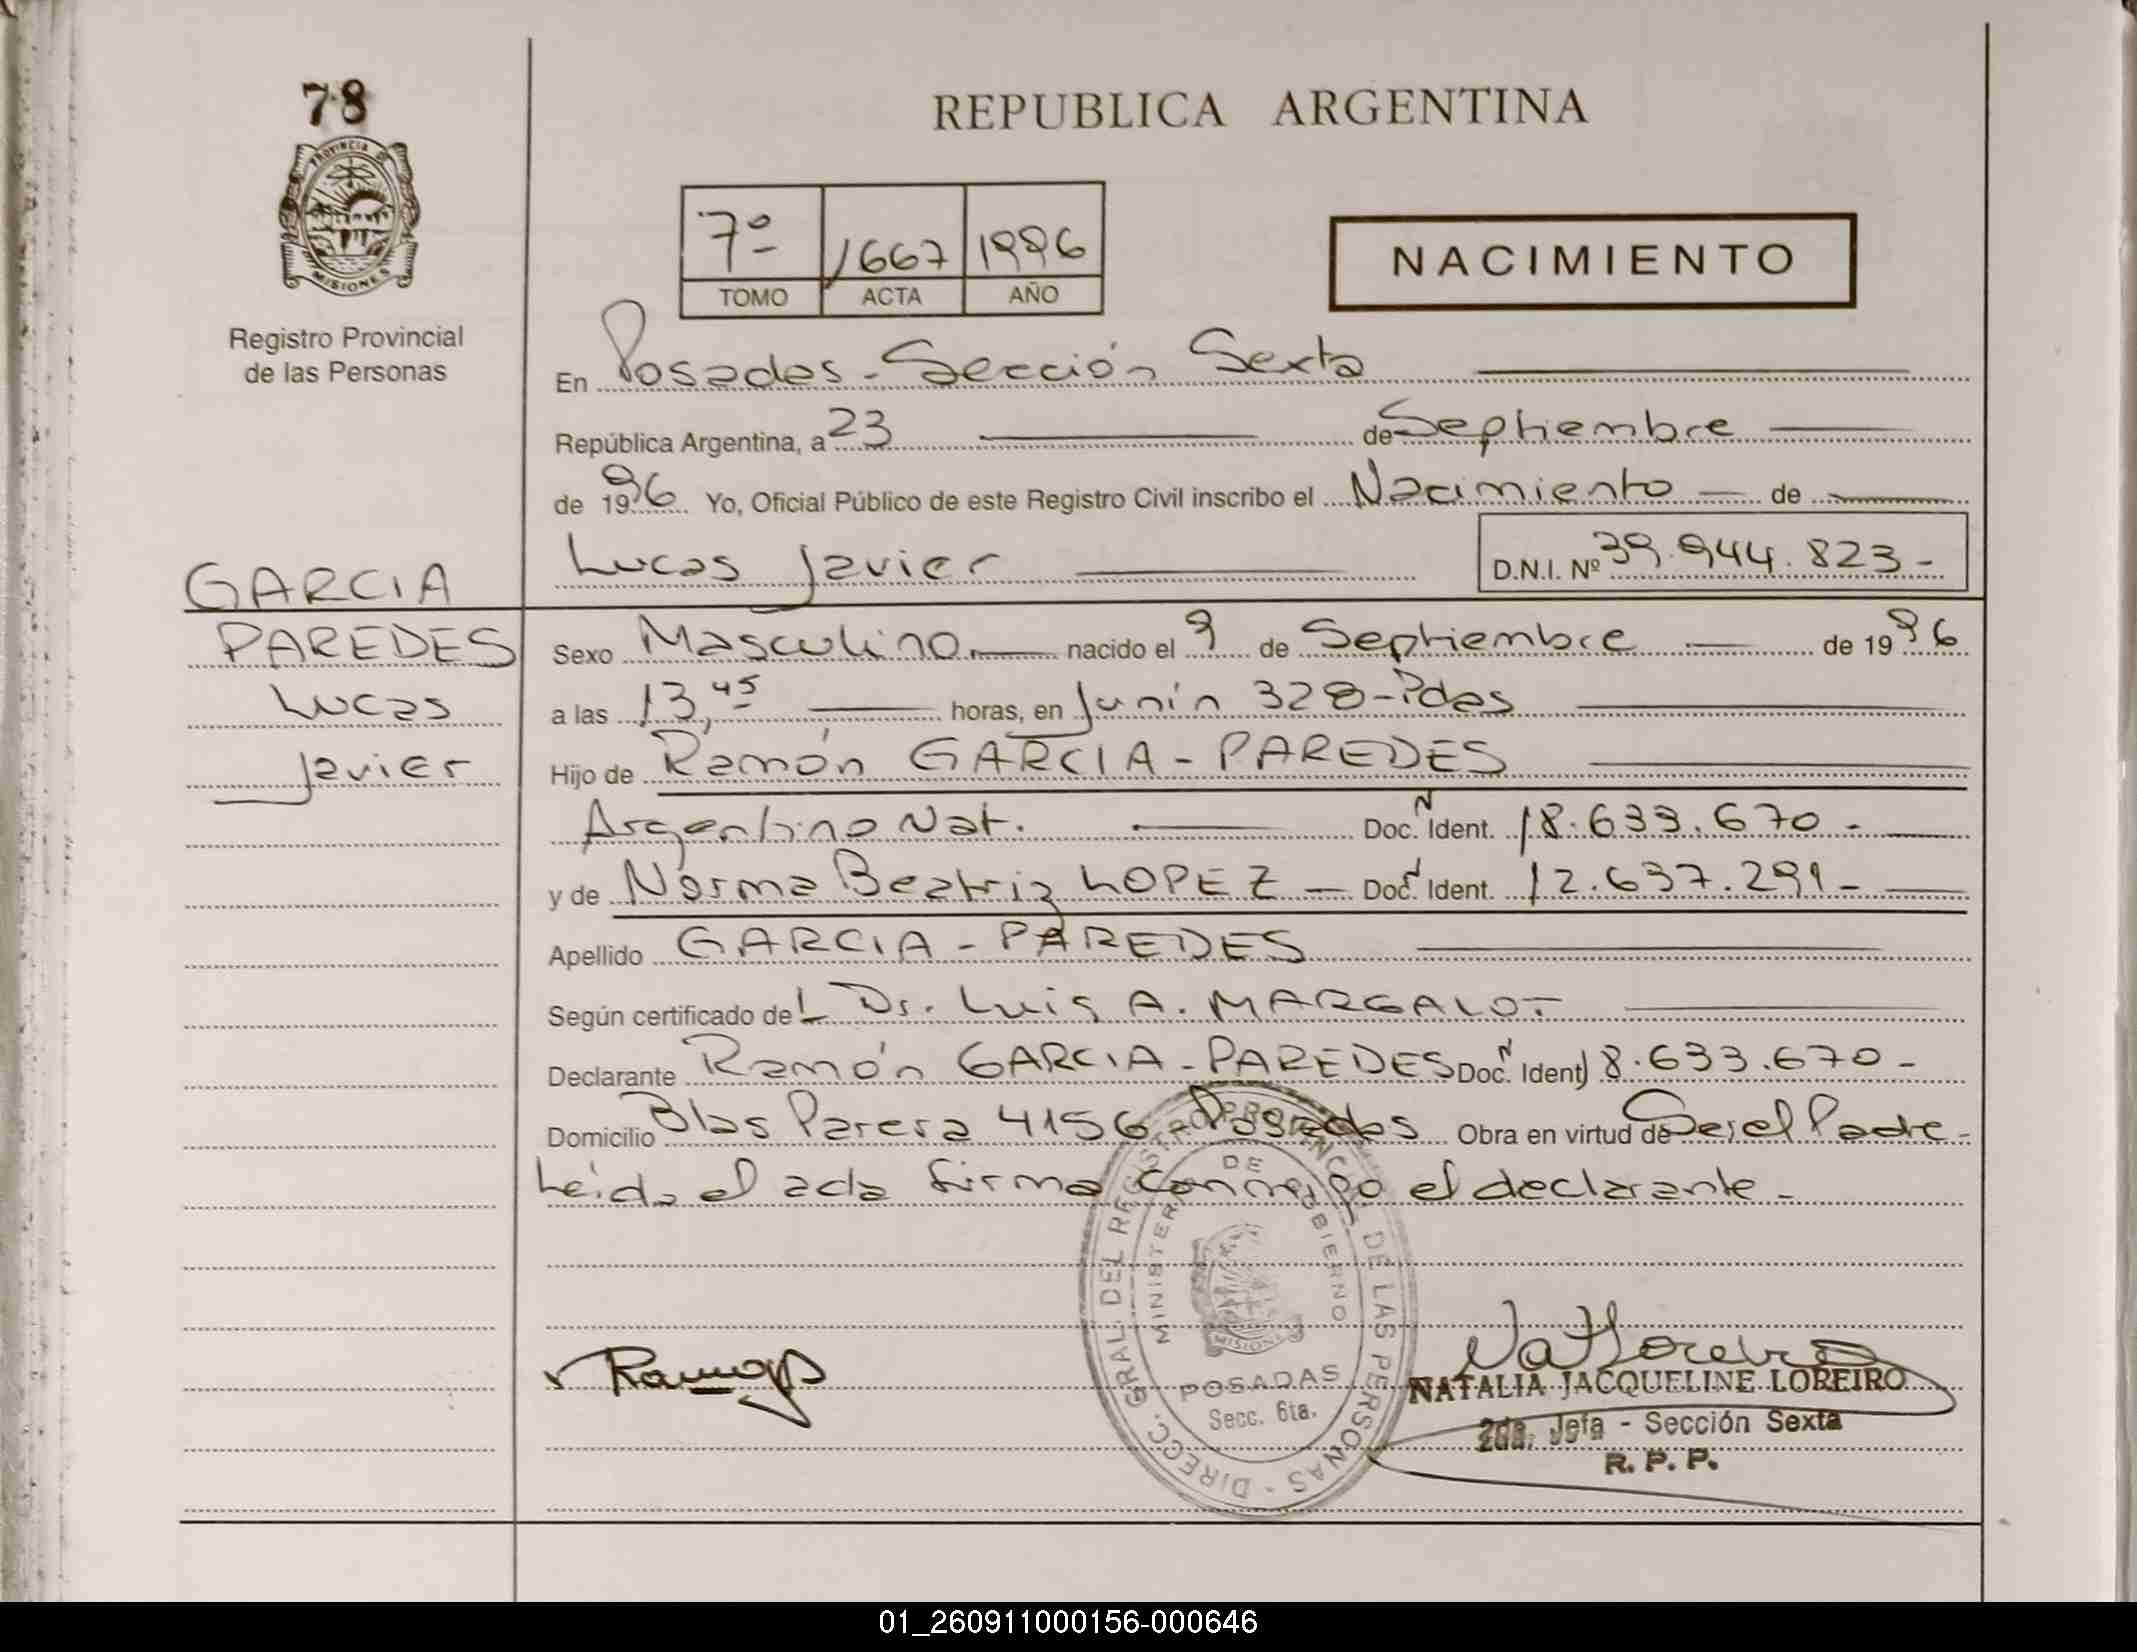 78
PROVINCIA DE
MISIONES
Registro Provincial
de las Personas
REPUBLICA ARGENTINA
7º 1667 1996
TOMO ACTA AÑO
NACIMIENTO
En Posadas - Sección Sexta
República Argentina, a 23 de Septiembre
de 1996 Yo, Oficial Público de este Registro Civil inscribo el Nacimiento de
Lucas Javier D.N.I. Nº 39.944.823-
GARCIA
PAREDES
Lucas
Javier
Sexo Masculino nacido el 9 de Septiembre de 1996
a las 13,45 horas, en Junín 328-Pdas
Hijo de Ramón GARCIA - PAREDES
Argentino Nat. Doc. N Ident. 18.633.670-
y de Norma Beatriz LOPEZ - Doc. N Ident. 12.637.291-
Apellido GARCIA - PAREDES
Según certificado del Dr. Luis A. MARGALOT
Declarante Ramón GARCIA - PAREDES Doc. N Ident 18.633.670-
Domicilio Blas Parera 4156 - Posadas Obra en virtud de Ser el Padre-
Leída el acta firma conmigo el declarante-
DIRECC. GRAL. DEL REGISTRO PROVINCIAL DE LAS PERSONAS
MINISTERIO DE GOBIERNO
MISIONES
POSADAS
Secc. 6ta.
NATALIA JACQUELINE LOREIRO
2da. Jefa - Sección Sexta
R. P. P.
01_260911000156-000646